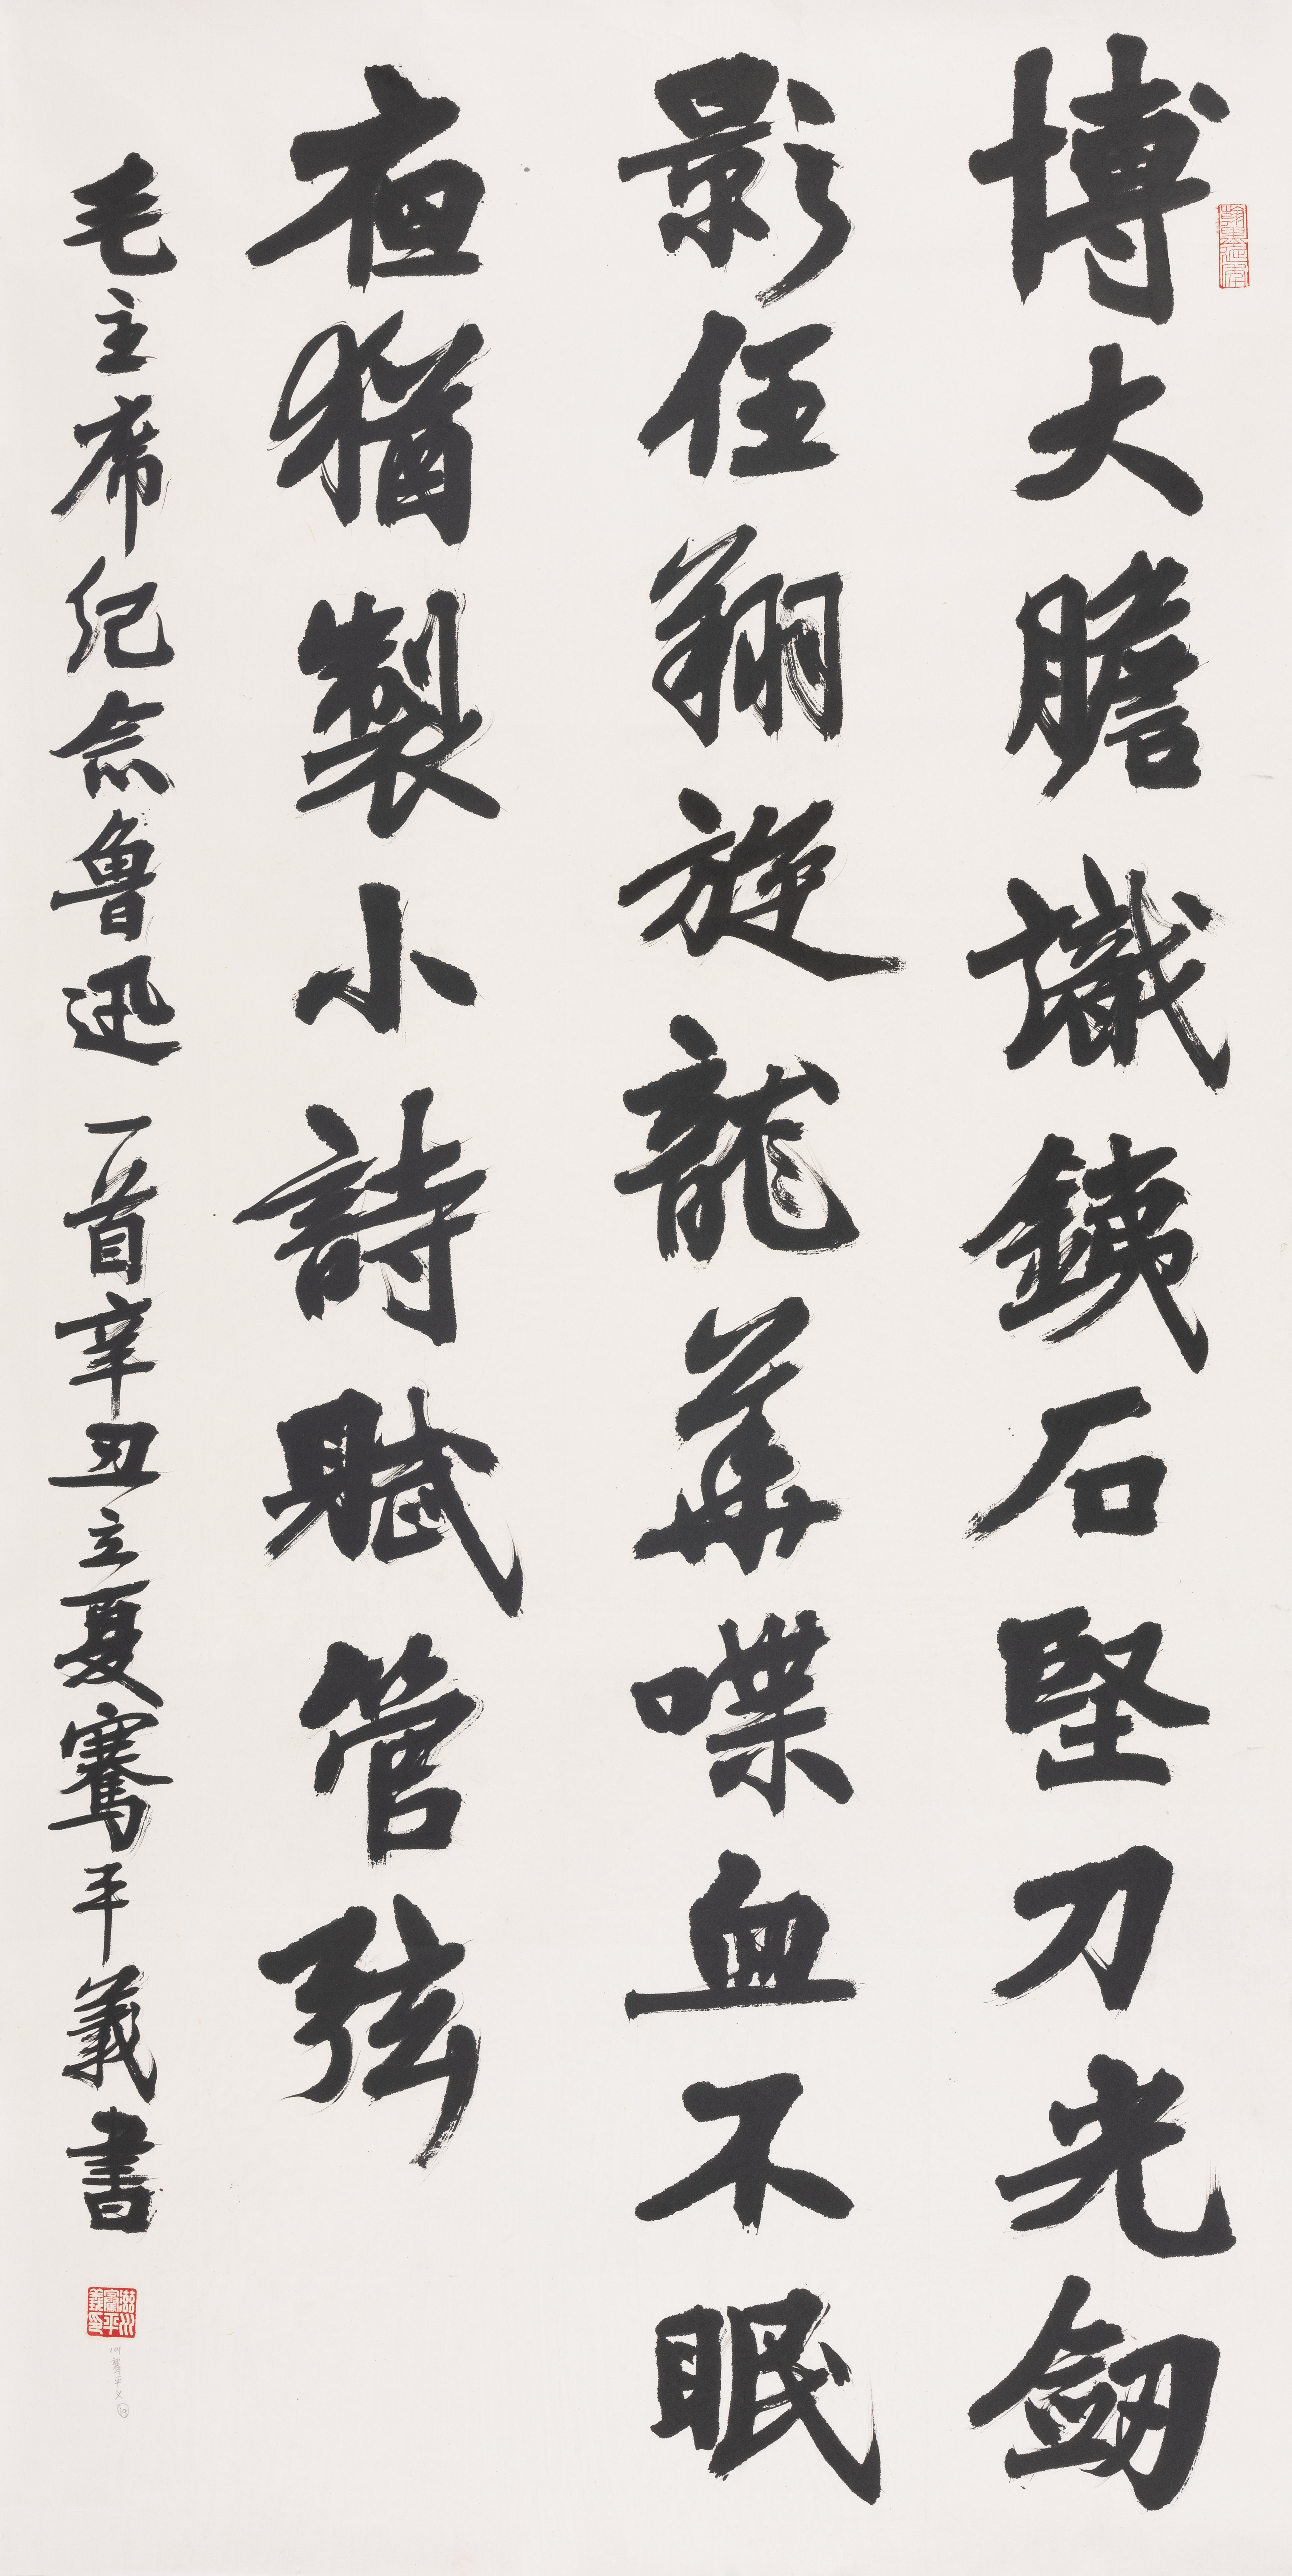 博大膽識鐵石堅刀光劒
影任翔旋龍華喋血不眠
夜猶製小詩賦管弦
毛主席纪念魯迅一首辛丑立夏騫平義書